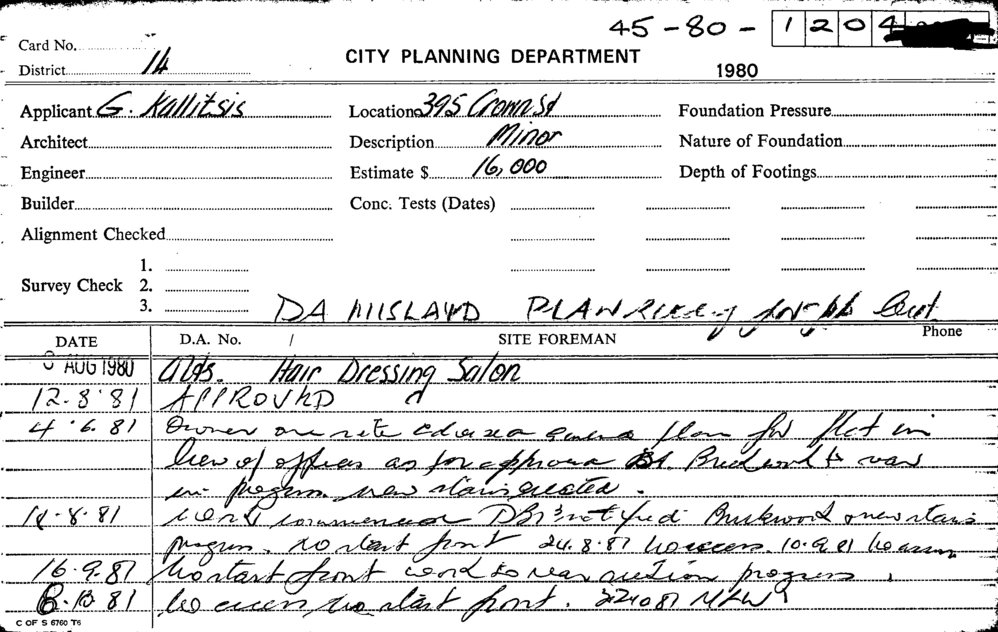 45-80-1204
Card No.
District 14
CITY PLANNING DEPARTMENT
1980
Applicant G. Kallitsis
Location 395 Crown St
Foundation Pressure
Architect
Description Minor
Nature of Foundation
Engineer
Estimate $ 16,000
Depth of Footings
Builder
Conc. Tests (Dates)
Alignment Checked
Survey Check 1.
2.
3.
DA MISLAYD
DATE D.A. No. / SITE FOREMAN Phone
AUG 1980 Alts. Hair Dressing Salon
12.8.81 APPROVED
4.6.81 Owner on site plan for flat in
lieu of offices as for Brickwork to rear
in progress new stairs erected.
work commenced notified Brickwork new stairs
progress. no start front 24.8.81 no access. 10.9.81 no access
16.9.81 No start front work to rear section progress.
81 No access no start front.
C OF S 6760 T6